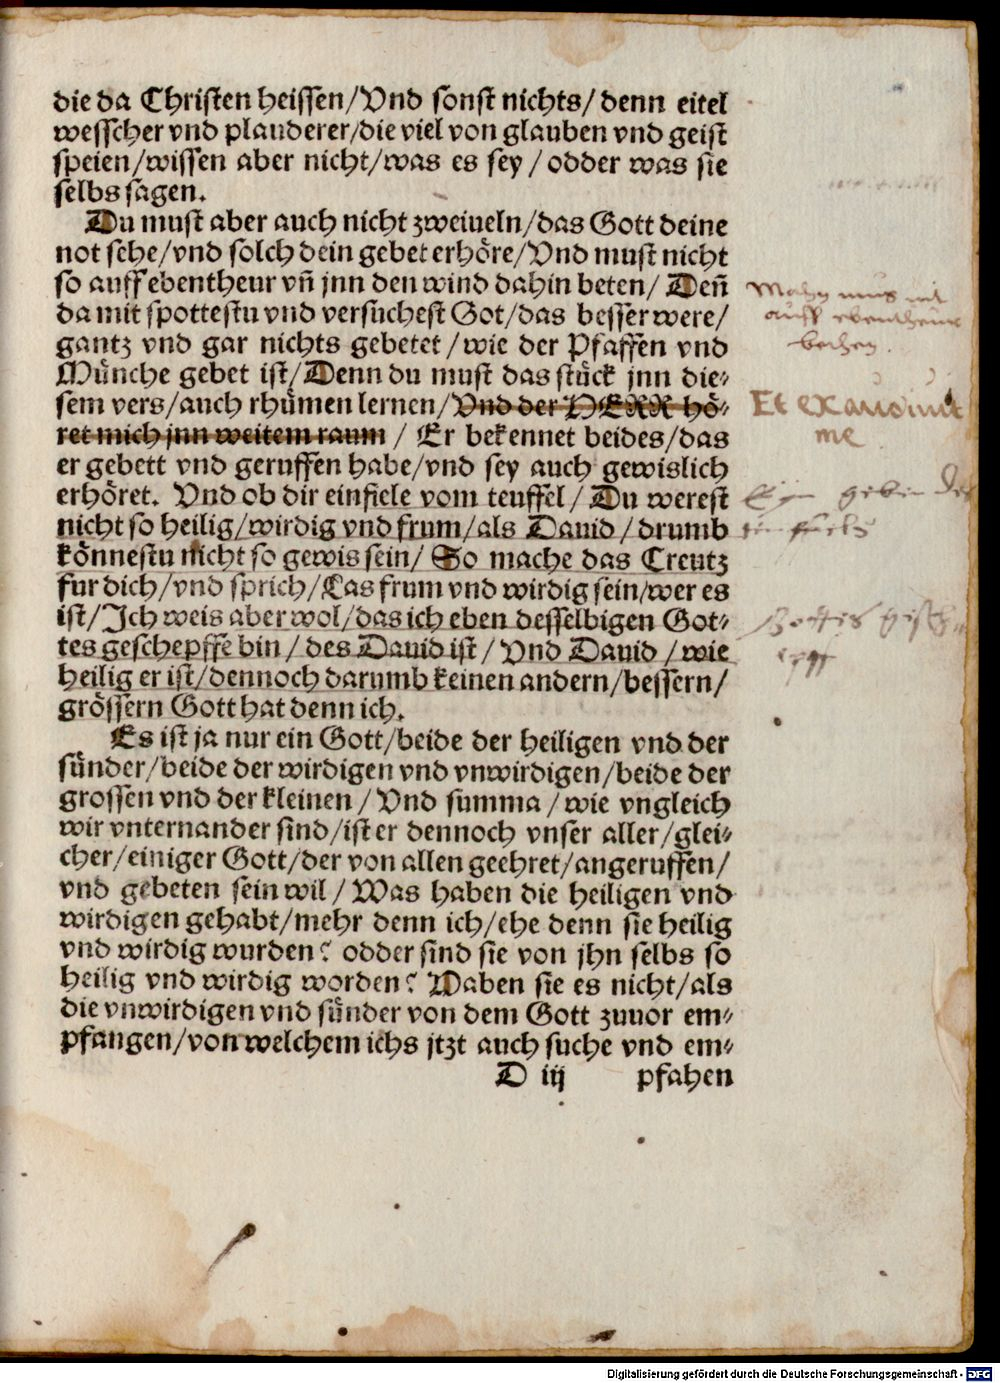 die da Christen heissen/Vnd sonst nichts/ denn eitel
wesscher vnd plauderer/die viel von glauben vnd geist
speien/wissen aber nicht/was es sey/odder was sie
selbs sagen.
Du must aber auch nicht zweiueln/das Gott deine
not sehe/vnd solch dein gebet erhöre/Vnd must nicht
so auff ebentheur vn̄ jnn den wind dahin beten/ Den̄
da mit spottestu vnd versuchest Got/das besser were/
gantz vnd gar nichts gebetet/wie der Pfaffen vnd
Münche gebet ist/Denn du must das stück jnn die⸗
sem vers/auch rhümen lernen/Vnd der HERR hö⸗
ret mich jnn weitem raum / Er bekennet beides/das
er gebett vnd geruffen habe/vnd sey auch gewislich
erhöret. Vnd ob dir einfiele vom teuffel/Du werest
nicht so heilig/wirdig vnd frum/als Dauid/drumb
könnestu nicht so gewis sein/ So mache das Creutz
fur dich/vnd sprich/Las frum vnd wirdig sein/wer es
ist/Ich weis aber wol/das ich eben desselbigen Got⸗
tes geschepffe bin/des Dauid ist/ Vnd Dauid/wie
heilig er ist/dennoch darumb keinen andern/bessern/
grössern Gott hat denn ich.
Es ist ja nur ein Gott/beide der heiligen vnd der
sünder/beide der wirdigen vnd vnwirdigen/beide der
grossen vnd der kleinen/Vnd summa/wie vngleich
wir vnternander sind/ist er dennoch vnser aller/glei⸗
cher/einiger Gott/der von allen geehret/angeruffen/
vnd gebeten sein wil/Was haben die heiligen vnd
wirdigen gehabt/mehr denn ich/ehe denn sie heilig
vnd wirdig wurden? odder sind sie von jhn selbs so
heilig vnd wirdig worden? Haben sie es nicht/als
die vnwirdigen vnd sünder von dem Gott zuuor em⸗
pfangen/von welchem ichs jtzt auch suche vnd em⸗
D iij pfahen
mus nit
auff ebentheur
bethen.
Et exaudiuit
me
geben des
teuffels
Gottis
Digitalisierung gefördert durch die Deutsche Forschungsgemeinschaft - DFG